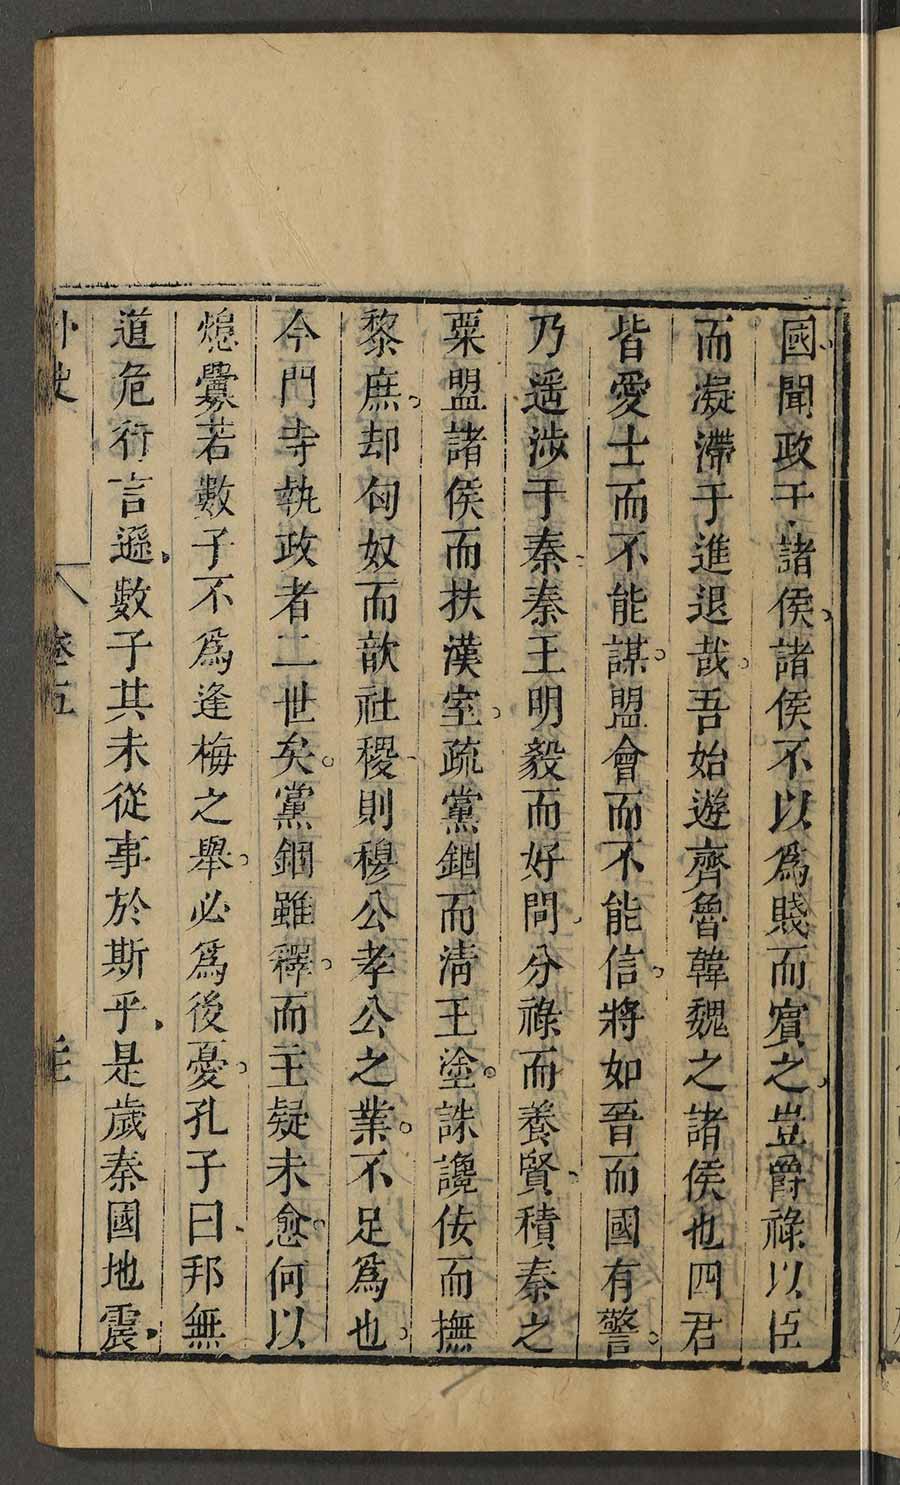 國聞政于諸侯諸侯不以爲賤而賓之豈爵祿以臣
而凝滯于進退哉吾始遊齊魯韓魏之諸侯也四君
皆愛士而不能謀盟會而不能信將如晉而國有警
乃遥涉于秦秦王明毅而好問分祿而養賢積秦之
粟盟諸侯而扶漢室疏黨錮而淸王塗誅讒佞而撫
黎庶却匈奴而歆社稷則穆公孝公之業不足爲也
今門寺執政者二世矣黨錮雖釋而主疑未愈何以
熄釁若數子不爲逢梅之舉必爲後憂孔子曰邦無
道危行言遜數子其未從事於斯乎是歲秦國地震
外史 卷五